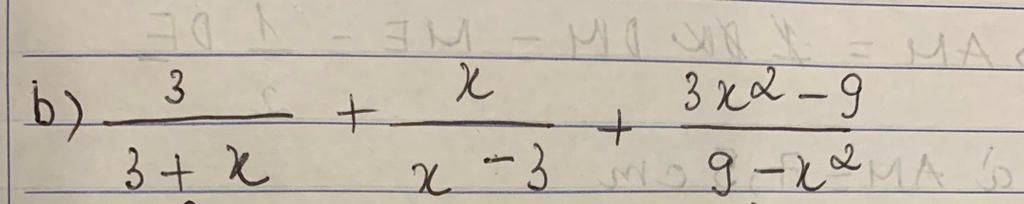 b) 3/(3 + x) + x/(x - 3) + (3x² - 9)/(9 - x²)